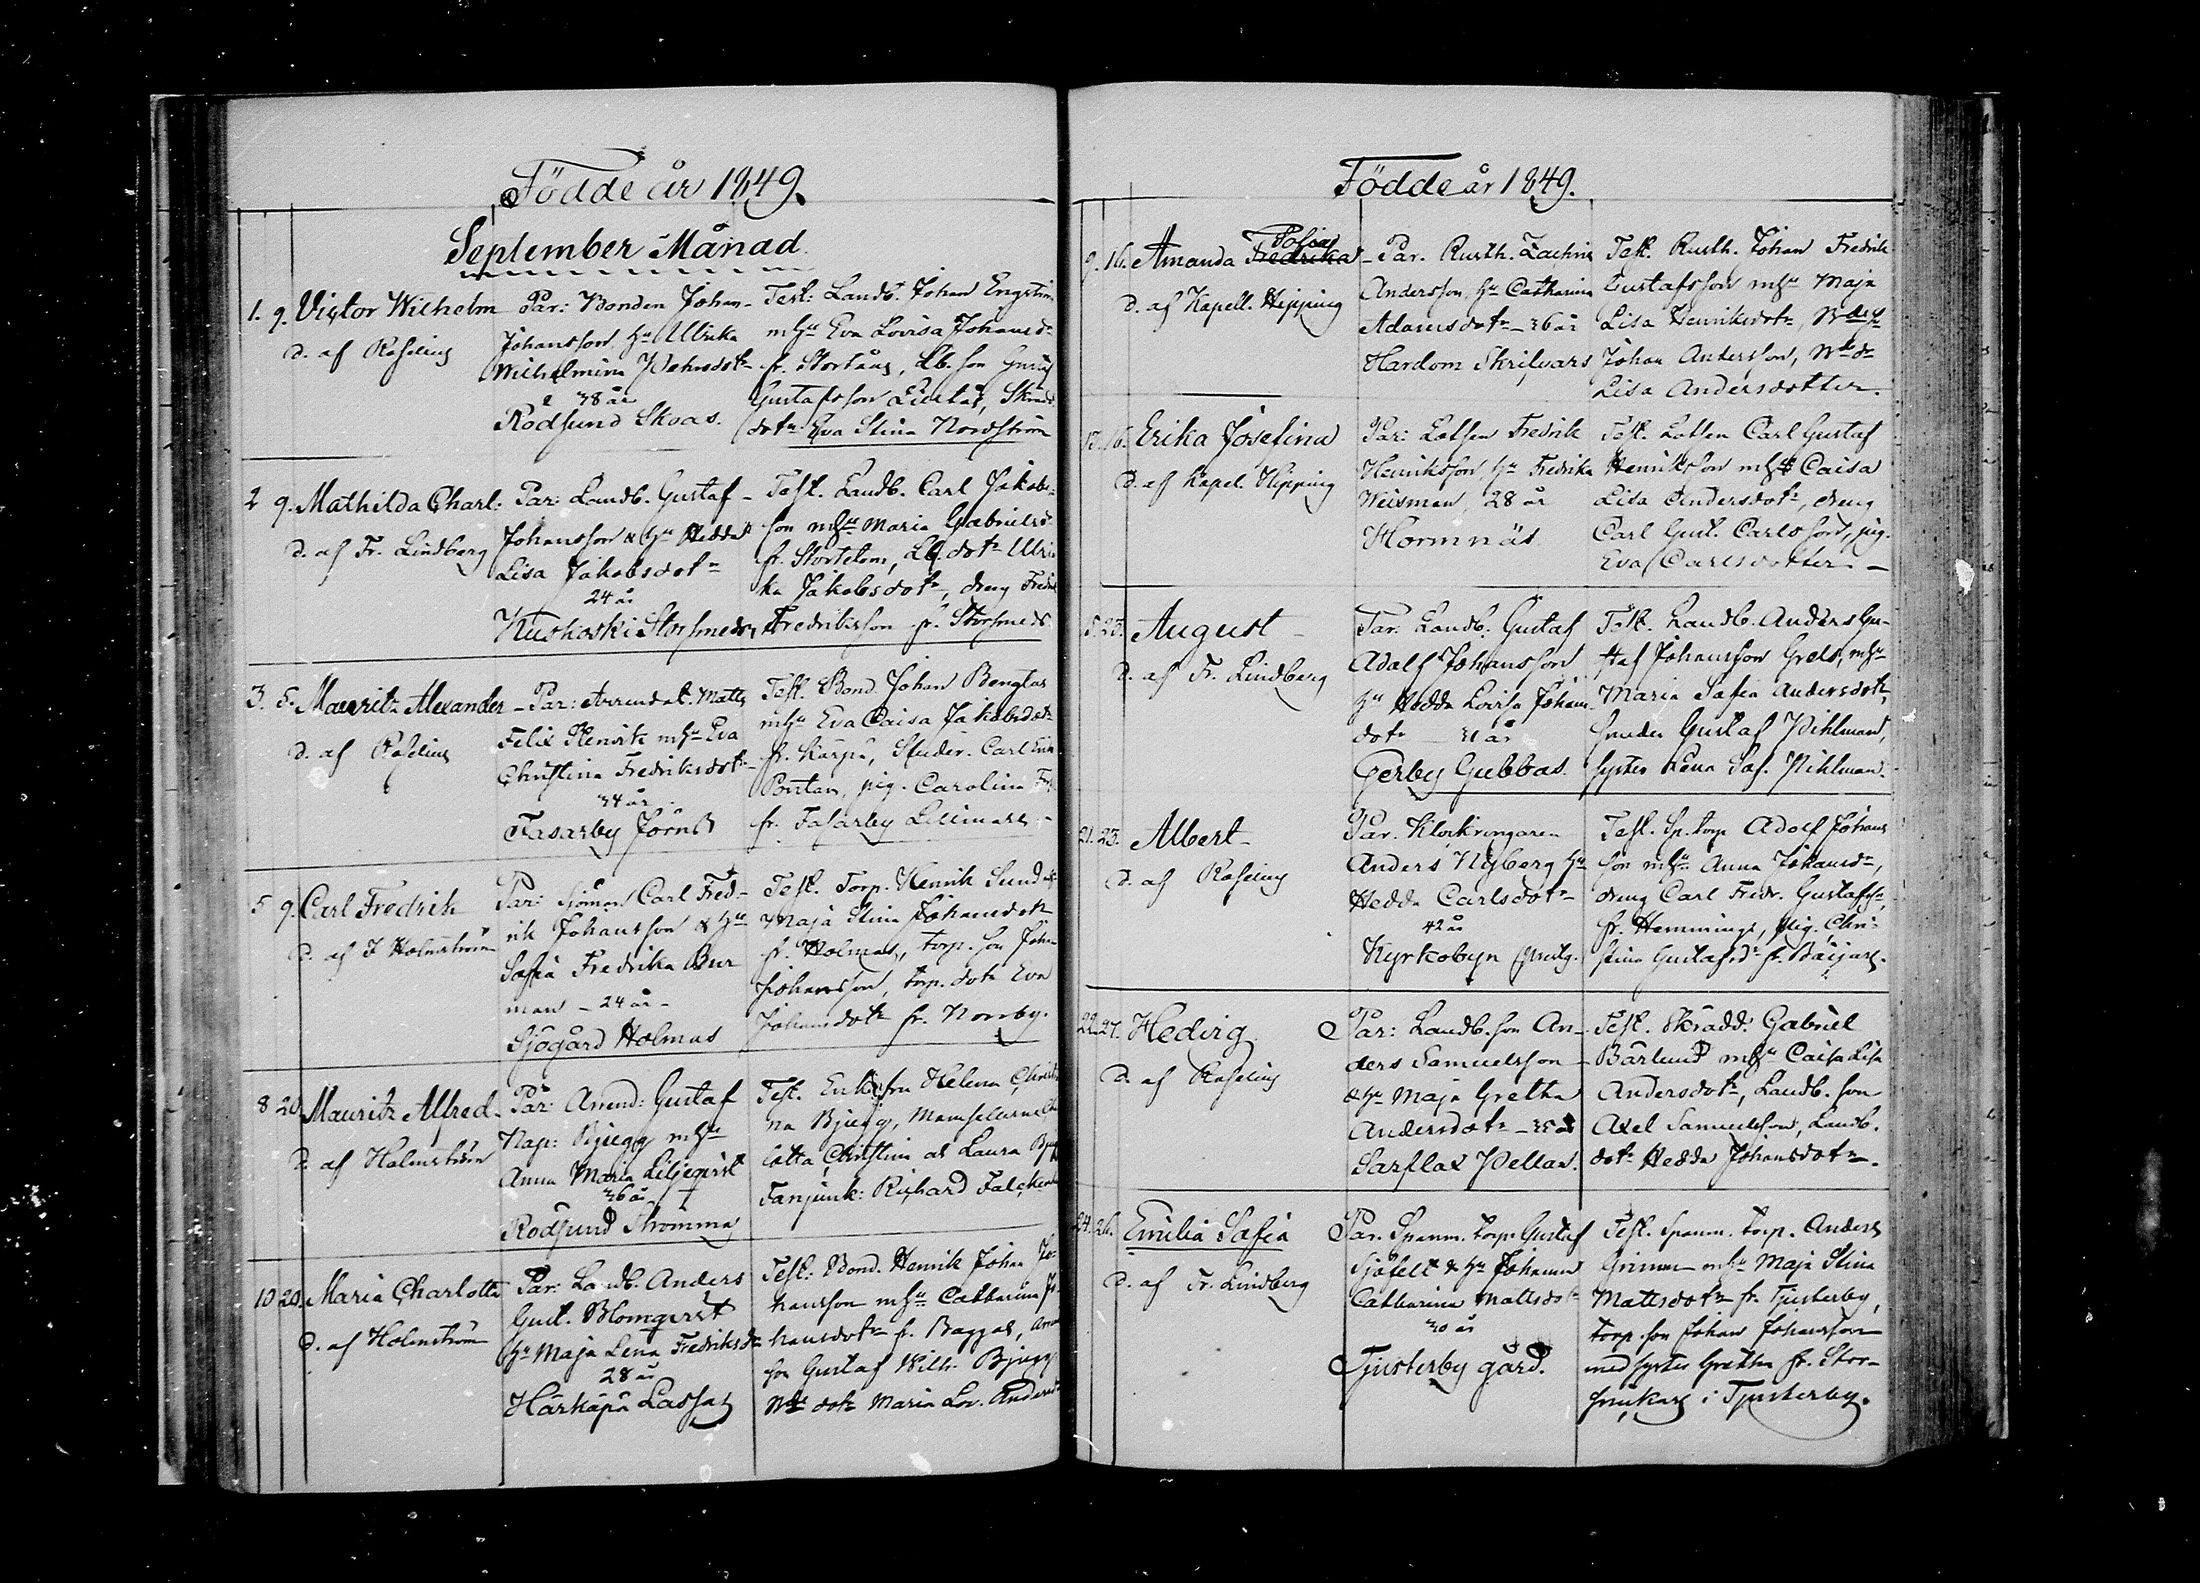 Födde år 1849.
September Månad
1. 9. Victor Wilhelm
D. af Roselius
Par: Bonden Johan
Johansson, hu Ulrika
Wilhelmina Johansdotr
38 år
Rödsund Skoas.
Test: Landb. Johan Engström
mhu Eva Lovisa Johansdr
fr. Stortåas, Lb. son Gustaf
Gustafsson
dotr Eva Stina Nordström
2 9. Mathilda Charl:
D. af Fr. Lindberg
Par: Landb. Gustaf
Johansson & hu Hedda
Lisa Jakobsdotr
24 år
Kuskoski Storsmeds
Test. Landb. Carl Jakobs-
son mhu Maria Gabrielsd
fr. Lb. dotr Ulri
ka Jakobsdotr, dreng Fredrik
Fredriksson fr. Storsmeds
3. 5. Mauritz Alexander
D. af Roselius
Par: Arrendat. Matts
Felix Henrik mhu Eva
Christina Fredriksdotr
34 år
Fasarby Jörns
Test. Bond. Johan Bengtas
mhu Eva Caisa Jakobsdotr
fr. Särspå, Studer. Carl
Pontan, pig. Carolina
fr. Fasarby Lillmars
5 9. Carl Fredrik
D. af J Holmström
Par: Sjöman Carl Fred-
rik Johansson & hu
Sofia Fredrika Bur
man - 24 år -
Sjögård Holmas
Test. Torp. Henrik Sund
Maja Stina Johansdotr
fr. Holmas, torp. son Johan
Johansson, torp. dotr Eva
Johansdotr fr. Norrby.
8 20. Mauritz Alfred
D. af Holmström
Par: Arrend: Gustaf
Nap: Bjugg mhu
Anna Maria Liljeqvist
36 år
Rödsund Strömma
Test. Enkefru Helena Christi
na Bjugg, Mamsellerna
lotta Christina och Laura
Fanjunk: Richard Falcken
10 20. Maria Charlotta
D. af Holmström
Par: Landb. Anders
Gust. Blomqvist
hu Maja Lena Fredriksdr
28 år
Härkäpä Lassas
Test: Bond. Henrik Johan Jo-
hansson mhu Catharina Jo
hansdotr fr. Baggas,
son Gustaf Wilh. Bjugg
dotr Maria Lov. Andersd
Födde år 1849.
Sofia
9. 16. Amanda Fredrika
D. af Kapell. Hipping
Par. Rusth. Zachris
Andersson, hu Catharina
Adamsdotr - 36 år
Hardom Skrifvars
Test. Rusth. Johan Fredrik
Gustafsson mhu Maja
Lisa Henriksdotr,
Johan Andersson,
Lisa Andersdotter.
13. 16. Erika Josefina
D. af Kapel. Hipping
Par: Lotsen Fredrik
Henriksson, hu Fredrika
Weisman, 28 år
Hormnäs
Test. Lotsen Carl Gustaf
Henriksson mhu Caisa
Lisa Andersdotr, dreng
Carl Gust. Carlsson, pig.
Eva Carlsdotter -
15. 23. August
D. af Fr. Lindberg
Par. Landb. Gustaf
Adolf Johansson
hu Hedda Lovisa Johans
dotr 31 år
Gerby Gubbas.
Test. Landb. Anders Gu-
staf Johansson Grels, mhu
Maria Sofia Andersdotr,
Gustaf Pihlman,
syster Lena Sof. Pihlman.
21. 23. Albert
D. af Roselius
Par. Klockringaren
Anders Nyberg hu
Hedda Carlsdotr
42 år
Kyrkobyn
Test. Sp. torp Adolf Johans
son mhu Anna Johansdr,
dreng Carl Fredr. Gustafss,
fr. Hemmings, pig. Chri-
stina Gustafsdr fr. Bäijars.
22. 27. Hedvig
D. af Roselius
Par: Landb. son An-
ders Samuelsson
& hu Maja Gretha
Andersdotr - 35 år
Sarflax Pellas.
Test. Skrädd. Gabriel
Bärlund mhu Caisa Lisa
Andersdotr, Landb. son
Axel Samuelsson, Landb.
dotr Hedda Johansdotr.
24. 26. Emilia Sofia
D. af Fr. Lindberg
Par. Spanm. torp. Gustaf
Sjöfelt & hu Johanna
Catharina Mattsdotr
30 år
Tjusterby gård.
Test. Spanm. torp. Anders
Grimm mhu Maja Stina
Mattsdotr fr. Tjusterby,
torp. son Johan Johansson
med syster Gretha fr. Stor-
i Tjusterby.